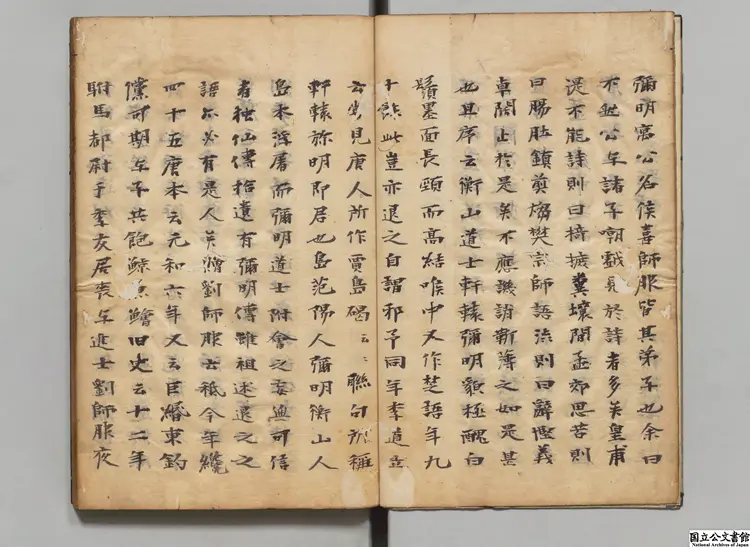 彌明寓公名侯喜師服皆其弟子也余曰
不然公与諸子嘲戲見於詩者多矣皇甫
湜不能詩則曰掎摭糞壤間孟郊思苦則
曰腸肚鎮煎煼樊宗師語澁則曰辭慳義
卓闊止於是矣不應譏誚薄之如是甚
也且序云衡山道士軒轅彌明貌極醜白
鬚墨面長頸而高結喉中又作楚語年九
十餘此豈亦退之自謂邪予同年李道立
云嘗見唐人所作賈島碣云云聯句所稱
軒轅弥明即君也島范陽人彌明衡山人
島本浮屠而彌明道士附會之妄無可信
者独仙傳拾遺有彌明傳雖祖述退之之
語亦必有是人矣贈劉師服云祗今年纔
四十五唐本云元和六年又云巨緡東釣
儻可期与子共飽鯨魚鱠旧史云十二年
駙馬都尉于季友居喪与進士劉師服夜
国立公文書館
National Archives of Japan